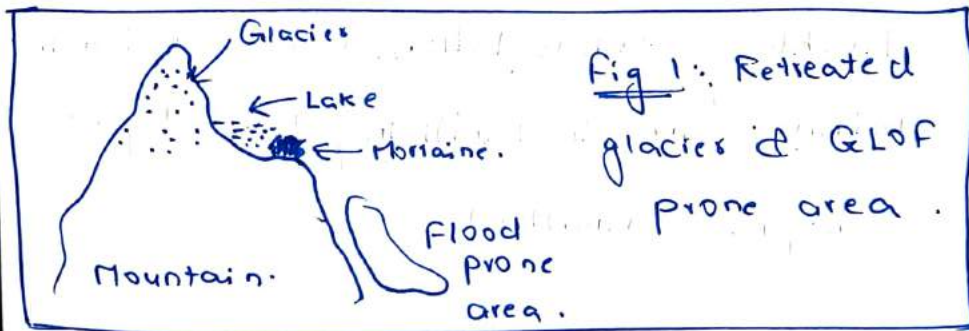 Glacier
Lake
Morraine.
Mountain.
Flood
prone
area.
Fig 1: Retreated
glacier & GLOF
prone area.